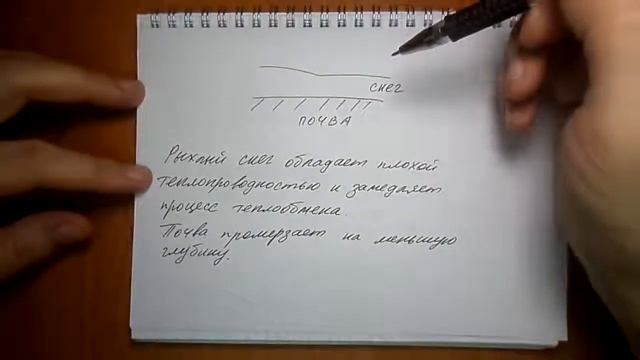 снег
ПОЧВА
Рыхлый снег обладает плохой
теплопроводностью и замедляет
процесс теплообмена.
Почва промерзает на меньшую
глубину.